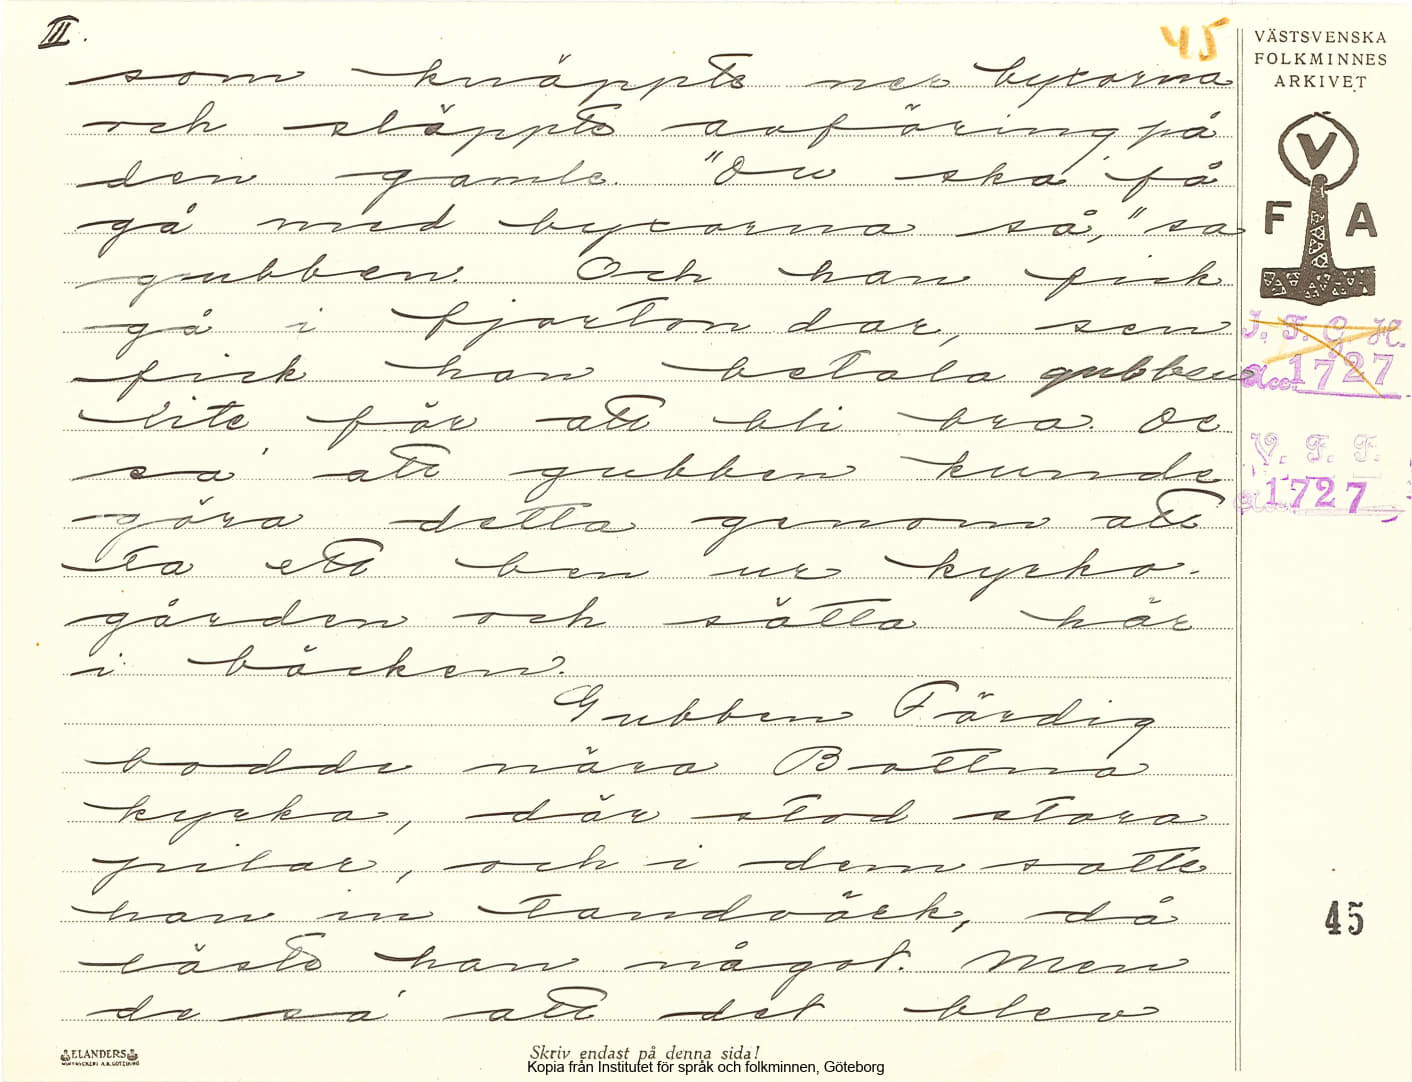 III.
45
som knäppte ner byxorna
och släppte avföring på
den gamle. "Du ska få
gå med byxorna så," sa
gubben. Och han fick
gå i fjorton dar, sen
fick han betala gubben
lite för att bli bra. De
sa' att gubben kunde
göra detta genom att
ta ett ben ur kyrko-
gården och sätta här
i bäcken.
Gubben Färdig
bodde nära Bottna
kyrka, där stod stora
pilar, och i dem satte
han in tandvärk, då
läste han något. Men
de sa' att det blev
VÄSTSVENSKA
FOLKMINNES
ARKIVET
V
F A
I. F. G. H.
acc. 1727
V. F. F.
acc. 1727
45
ELANDERS
Skriv endast på denna sida!
Kopia från Institutet för språk och folkminnen, Göteborg